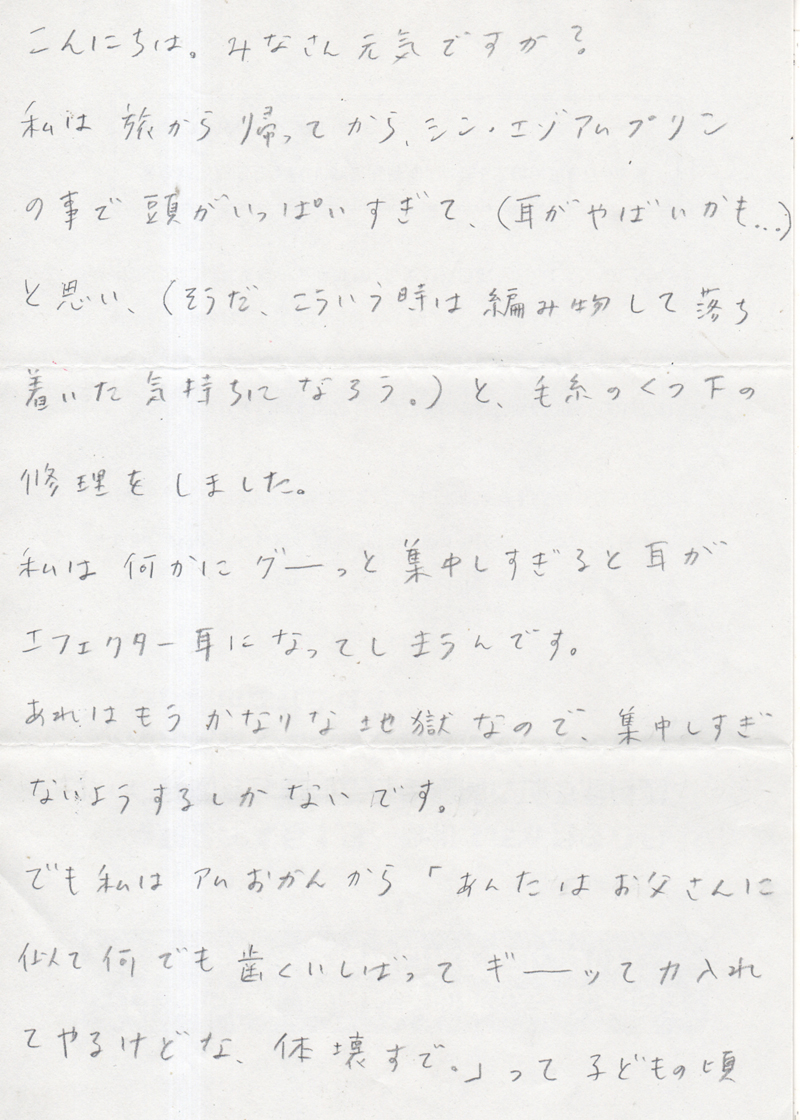 こんにちは。みなさん元気ですか?
私は旅から帰ってから、シン・エゾアムプリン
の事で頭がいっぱいすぎて、(耳がやばいかも...)
と思い、(そうだ、こういう時は編み物して落ち
着いた気持ちになろう。)と、毛糸のくつ下の
修理をしました。
私は何かにグーっと集中しすぎると耳が
エフェクター耳になってしまうんです。
あれはもうかなりな地獄なので、集中しすぎ
ないようするしかないです。
でも私はアムおかんから「あんたはお父さんに
似て何でも歯くいしばってギーッて力入れ
てやるけどな、体壊すで。」って子どもの頃